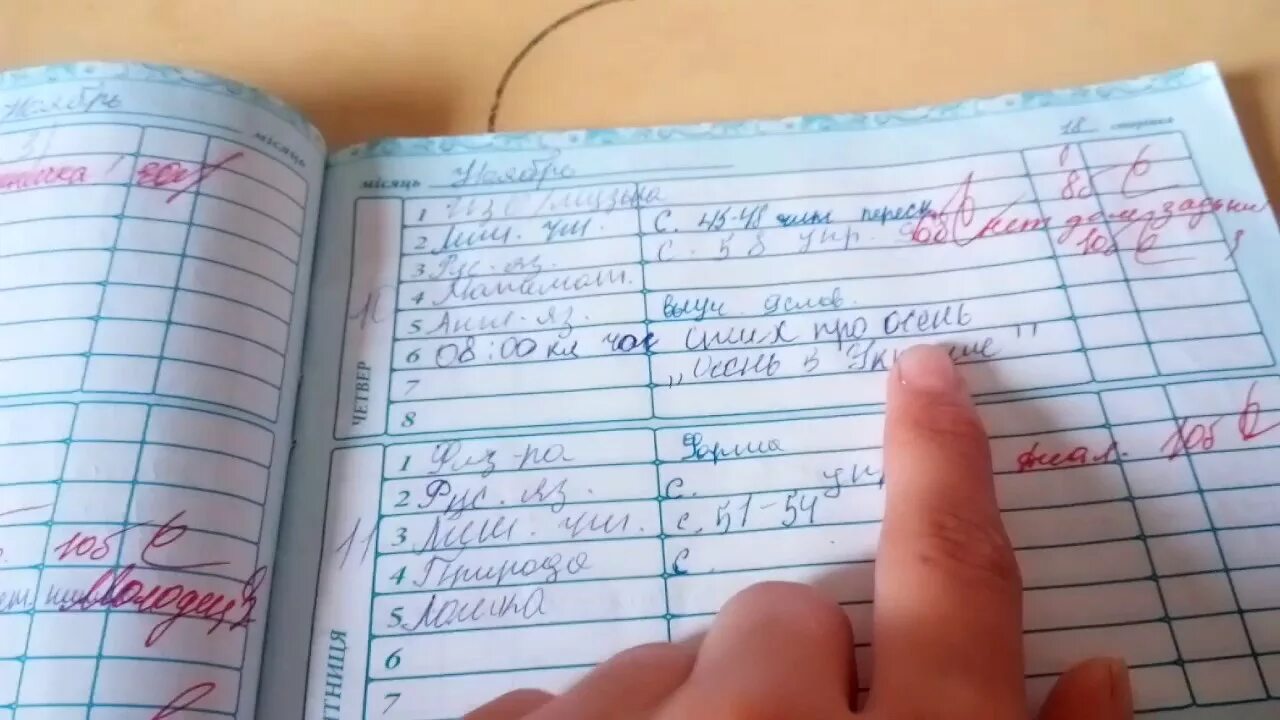 Ноябрь
місяць
Молодец
10б
місяць Ноябрь 18 сторінка
ЧЕТВЕР 10
1 Изо/музыка
2 Лит. чт. с. 45-48 чит. 8б
3 Рус. яз. с. 58 упр. 10б нет дом. задания
4 Математ. 10б
5 Англ. яз. выуч. услов.
6 08:00 кл час стих про осень
7 „Осень в
8
11
1 Физ-ра Форма
2 Рус. яз. с. упр 10б
3 Лит. чт. с. 51-54
4 Природа с.
5 Логика
6
7